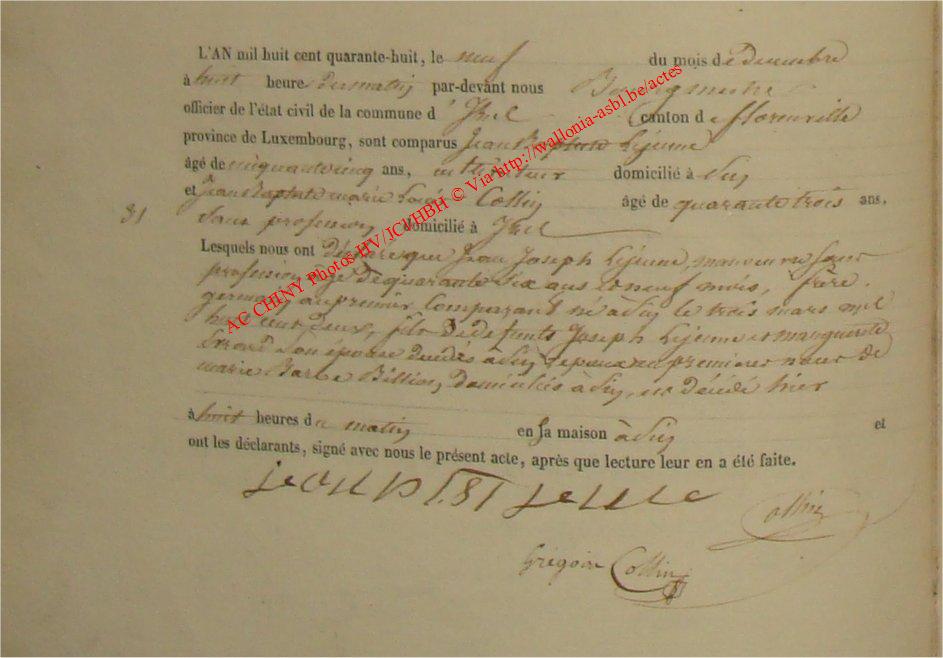 L'AN mil huit cent quarante-huit, le neuf du mois de Decembre
à huit heure du matin par-devant nous Bourgmestre
officier de l'état civil de la commune d' Izel canton de florenville
province de Luxembourg, sont comparus Jean Baptiste Lejeune
âgé de cinquante cinq ans, cultivateur domicilié à
et Jean Baptiste marie Collin âgé de quarante trois ans,
31 Sans profession domicilié à Izel
Lesquels nous ont déclaré que Jean Joseph Lejeune, manœuvre sans
profession agé de quarante six ans et neuf mois, frère
germain au premier Comparant né à le trois mars mil
huit cent deux, fils de défunts Joseph Lejeune et marguerite
son épouse décédés à époux en premieres noces de
marie Barbe domiciliés à est décédé hier
à huit heures du matin en sa maison à et
ont les déclarants, signé avec nous le présent acte, après que lecture leur en a été faite.
Collin
Grégoire Collin
AC CHINY Photos HV/JCVHBH © Via http://wallonia-asbl.be/actes